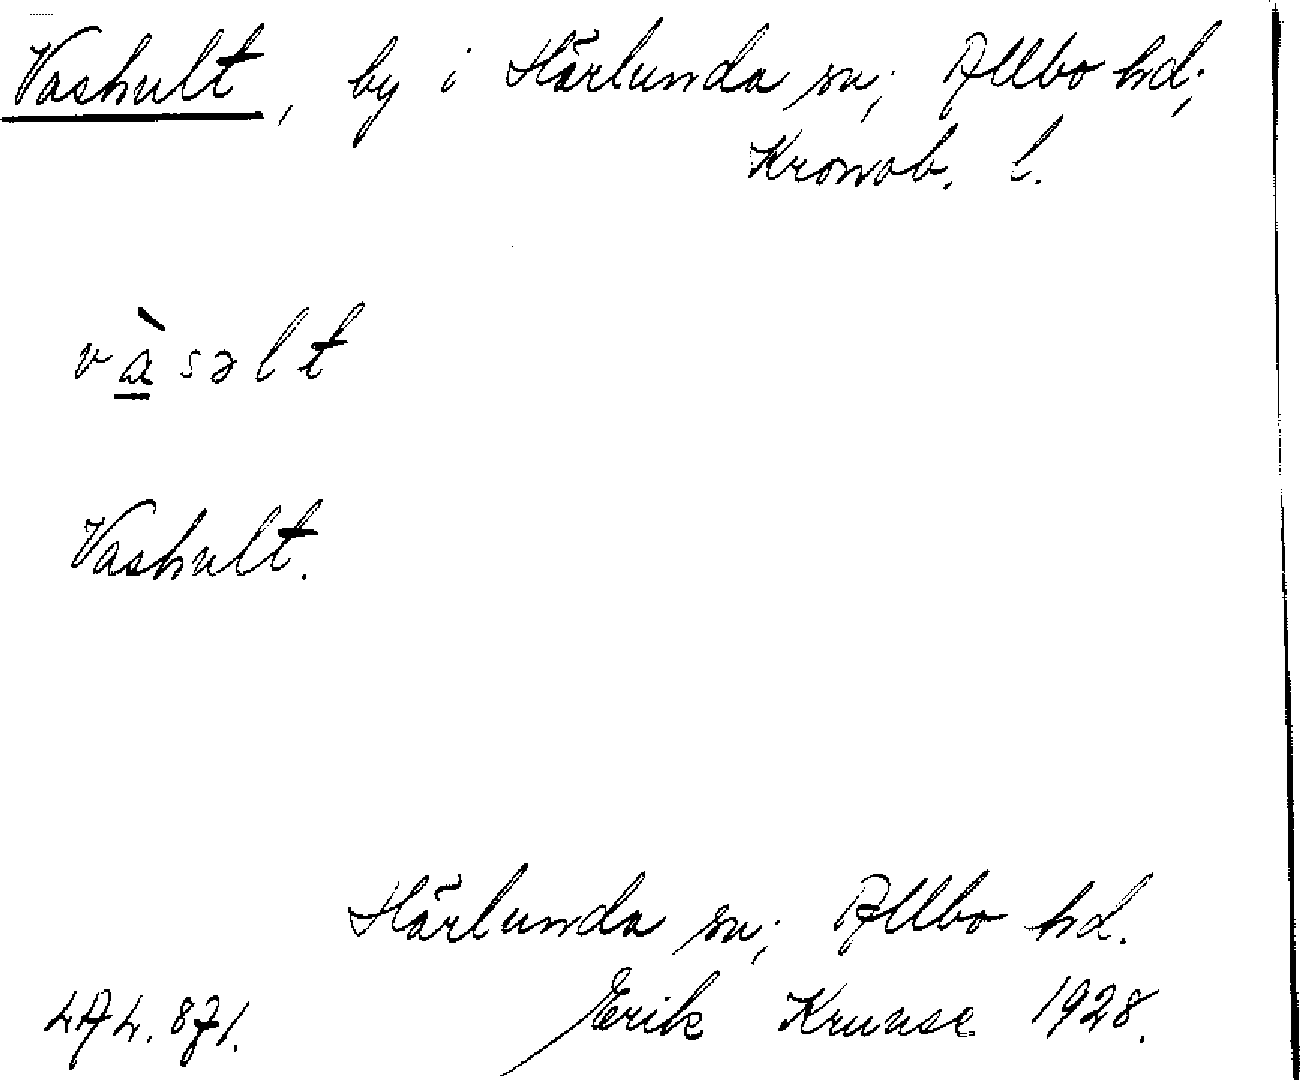 Vashult, by i Härlunda sn; Allbo hd;
Kronob. l.
vàsəlt
Vashult.
Härlunda sn; Allbo hd.
LAL. 871. Erik Kruuse 1928.